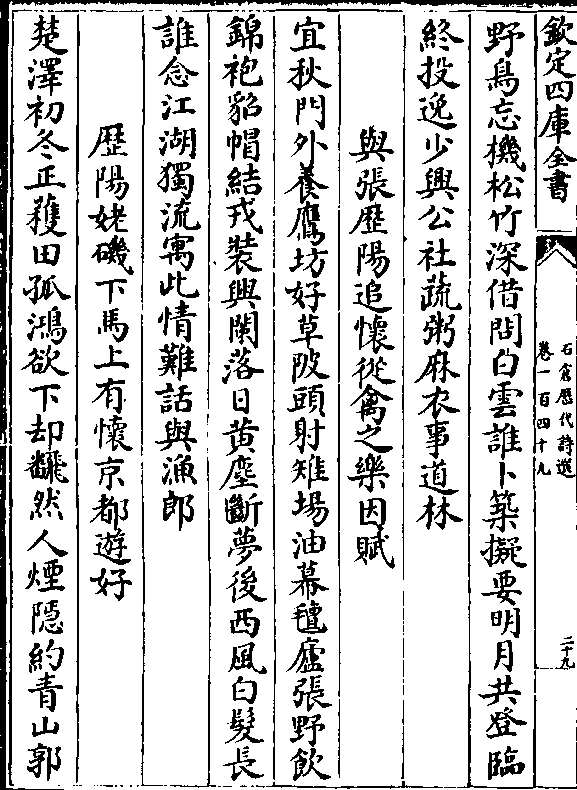 欽定四庫全書
石倉歷代詩選
卷一百四十九
二十九
野鳥忘機松竹深借問白雲誰卜築擬要明月共登臨
終投逸少興公社蔬粥麻衣事道林
與張歴陽追懷從禽之樂因賦
宜秋門外養鷹坊好草陂頭射雉場油幕氊廬張野飲
錦袍貂帽結戎裝興闌落日黄塵斷夢後西風白髮長
誰念江湖獨流寓此情難話與漁郎
歴陽姥磯下馬上有懷京都遊好
楚澤初冬正穫田孤鴻欲下却翻然人煙隱約青山郭